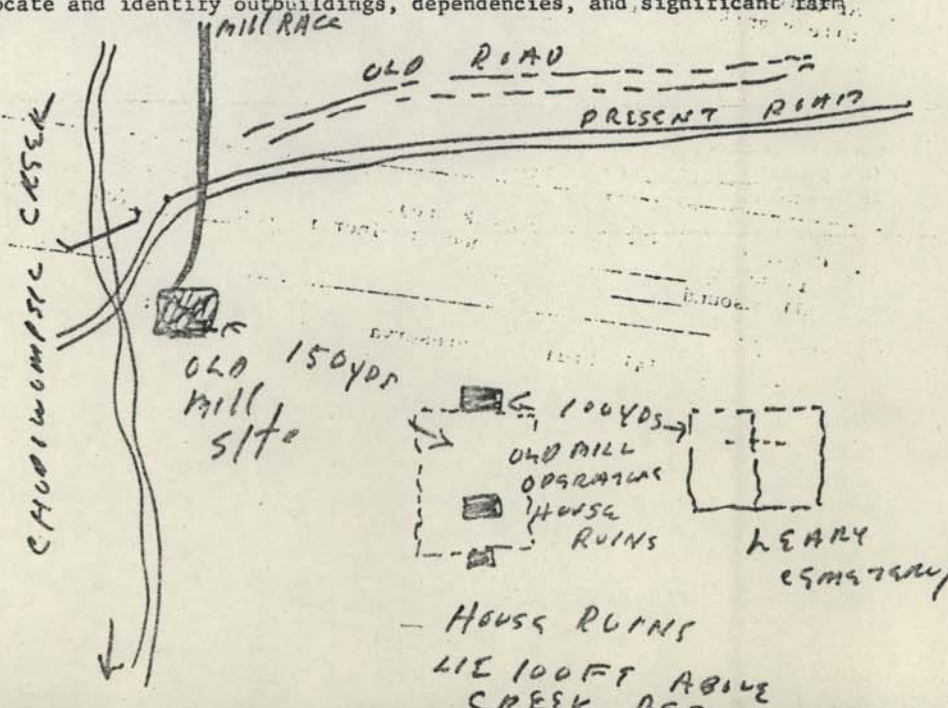 ocate and identify outbuildings, dependencies, and significant farm
Mill RACE
OLD ROAD
PRESENT ROAD
150 yDS
OLD
Mill
SitE
100 YDS
OLD MILL
OPERATORS
HOUSE
RUINS
LEARY
CEMETERY
HOUSE RUINS
LIE 100 FT ABOVE
CREEK